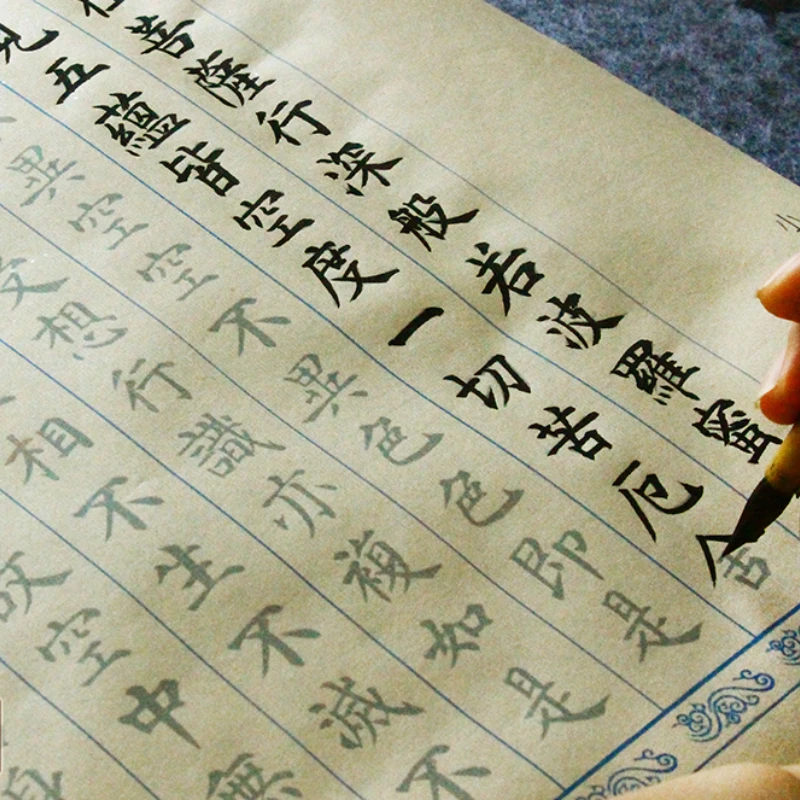 菩薩行深般若波羅蜜
見五蘊皆空度一切苦厄舍
異空空不異色色即是
受想行識亦複如是
相不生不滅不
故空中無